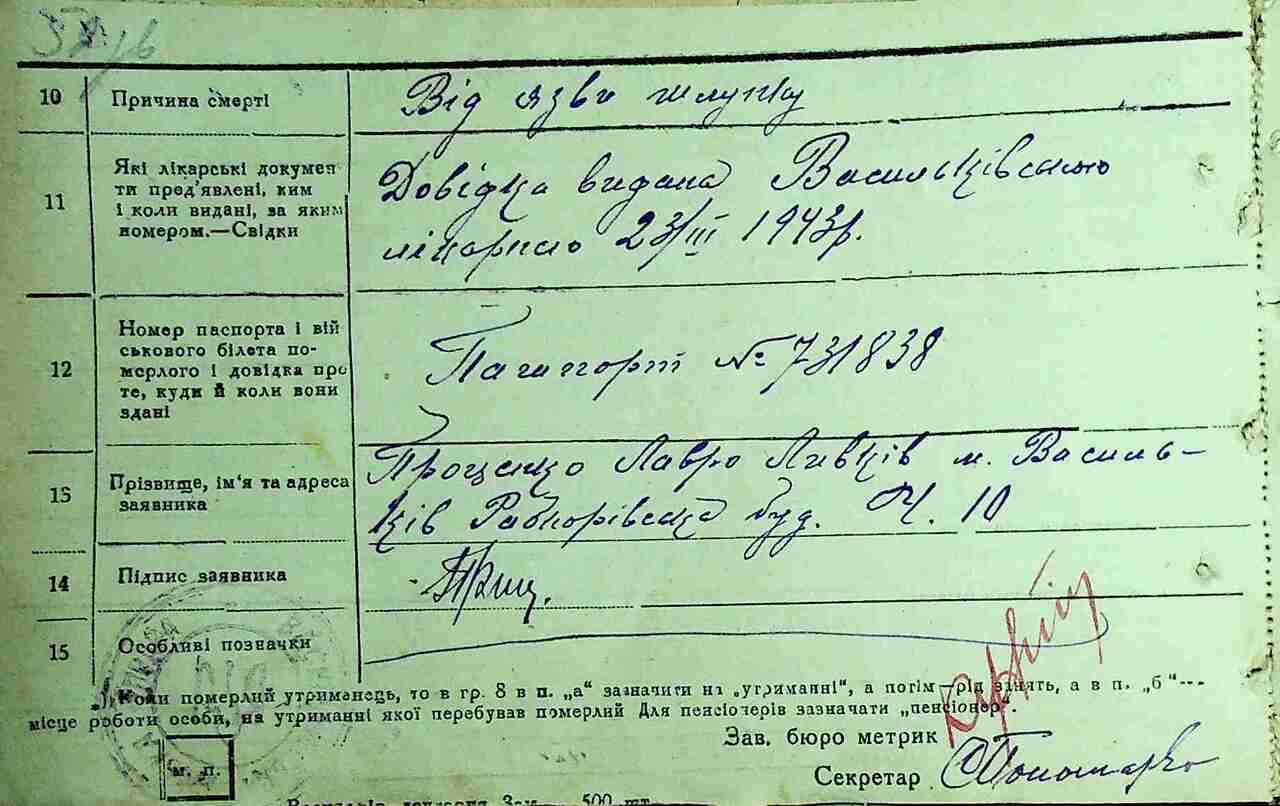 10 Причина смерті Від язви шлунку
11 Які лікарські докумен
ти пред'явлені, ким
і коли видані, за яким
номером.—Свідки
Довідка видана Васильківською
лікарнею 23/III 1943р.
12 Номер паспорта і вій
ськового білета по-
мерлого і довідка про
те, куди й коли вони
здані
Пашпорт № 731838
13 Прізвище, ім'я та адреса
заявника
Проценко Лавро м. Василь-
ків Рабкорівська буд. Ч. 10
14 Підпис заявника
15 Особливі позначки
Коли померлий утриманець, то в гр. 8 в п. „а“ зазначити на „утриманні“, а потім—рід занять, а в п. „б“—
місце роботи особи, на утриманні якої перебував померлий Для пенсіонерів зазначати „пенсіонер“.
Зав. бюро метрик
Секретар Пономарко
м. п.
500 шт.